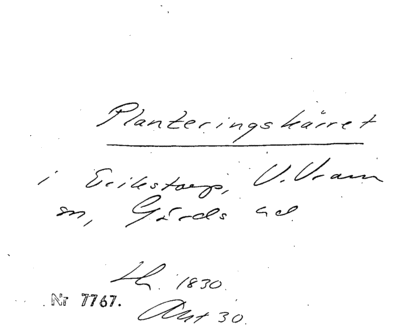 Planteringskärret
i Erikstorp, V. Vram
sn, Gärds hd.
Lh. 1830.
Nr 7767.
Akt 30.